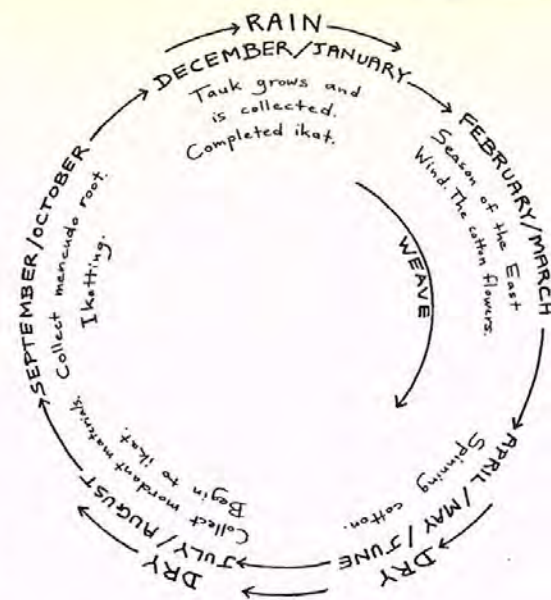 RAIN
DECEMBER/JANUARY
Tauk grows and
is collected.
Completed ikat.
FEBRUARY/MARCH
Season of the East
Wind. The cotton flowers.
WEAVE
APRIL/MAY/JUNE
Spinning cotton.
DRY
JULY/AUGUST
Collect mordant materials.
Begin to ikat.
DRY
SEPTEMBER/OCTOBER
Collect mencudo root.
Ikatting.